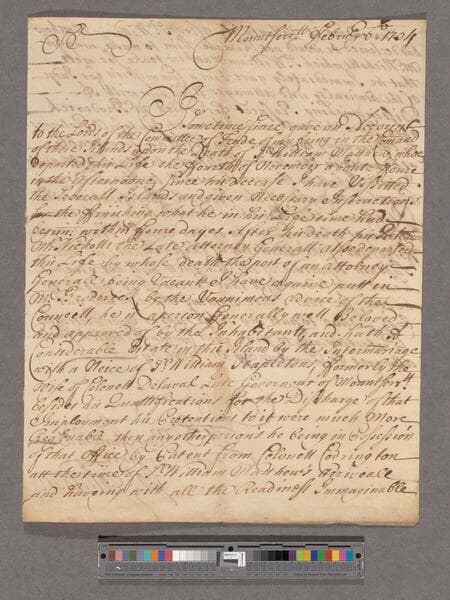 Montserrt Febry 1704
Sr
I Sometime since gave an Account
to the Lord of the Comittee of Trade of my being in the Comand
of these Islands upon the Death of Sr William Mathew who
departed this Life the fourth of December aboute foure
in the Afternoone, Since his decease I have Vissitted
the Severall Islands and given Necessary Instructions
for the finnishing what he in his Life time had
begun, within foure dayes After his death
Mr Nicholls the Late Attorney Generall also departed
this Life by whose death the post of an Attorney
Generall being Vacant I have againe putt in
Mr Broderick by the Vnanimous advice of the
Councell, he is a person Generally well Beloved
and approved of by the Inhabitants, and hath A
Considerable Estate in this Island by the Intermariage
with a Neice of Sr William Stapletons, formerly the
Wife of Colonell Delaval Late Governour of Montserrt
besides his Quallifications for the Discharge of that
Employment his Pretentions to it were much More
reasonable then any other persons he being in Possession
of that Office by Patent from Colonell Codrington
att the time of Sr William Mathew's Arriveall
and haveing with all the Readiness Immaginable